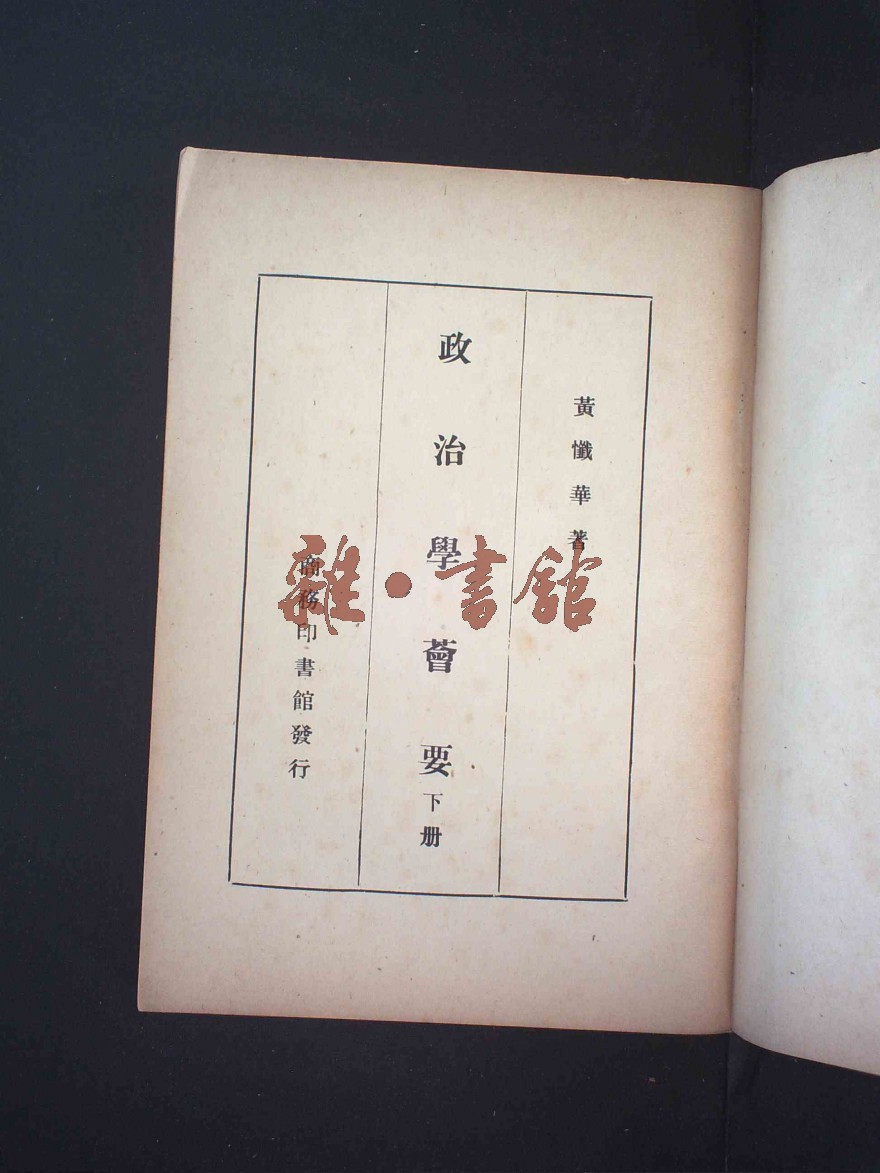 黃懺華著
政治學薈要下册
商務印書館發行
雜·書館